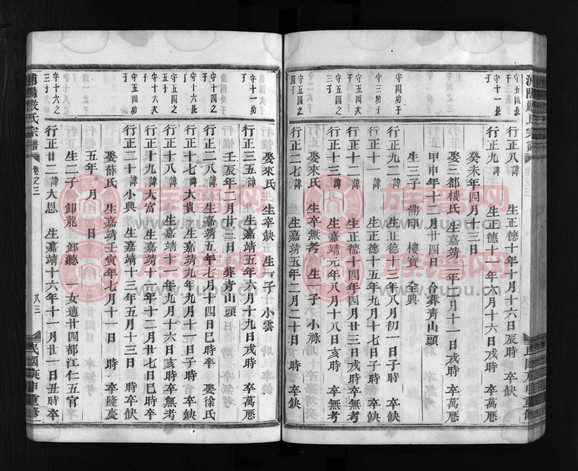 守十一長子
行正八諱 生正德十年六月十六日辰時 卒缺
癸未年四月十三日
娶三都樓氏 生嘉靖二年二月十一日戌時 卒萬厯
甲申年十二月廿四日 合葬青山頭
生三子 全與
守十四幼子
行正九諱 生正德十三年八月初一日子時 卒缺
守三幼子
行正十一諱 生正德十五年九月六日戌時 卒缺
守五四長子
行正十二諱 生正德十四年四月十六日子時 卒缺
娶來氏 生卒無考 生一子
行正十三諱 生嘉靖元年八月十八日亥時 卒無考
守五四之四子
行正二七諱 生嘉靖五年二月二十日 時 卒缺
娶來氏 生卒缺 生一子 小雲
守十一幼子
行正三五諱 生嘉靖六月十九日戌時 卒萬厯
壬辰年二月廿三日 葬青山頭
守十四之三子
行正二八諱 生嘉靖五年七月十四日巳時卒 娶徐氏
守十六長子
行正十七諱大賓 生嘉靖九年九月十一日子時 卒缺
守五四之五子
行正十八諱 生嘉靖十一年九月十六日亥時卒無考
守十六次子
行正十九諱大富 生嘉靖十一年十二月廿七日巳時卒
守五四幼子
行正二十諱小典 生嘉靖十三年五月十三日 時 卒缺
娶薛氏 生嘉靖壬寅年七月十一日 時 卒隆慶
五年 月 日
生二子 卸龍 卸聽 一女適廿四都江仁五官
守十六之三子
行正廿二諱大恩 生嘉靖十六年十一月廿一日丑時卒
浦陽嚴氏宗譜 卷之三 八三 民國庚申重修
族譜网